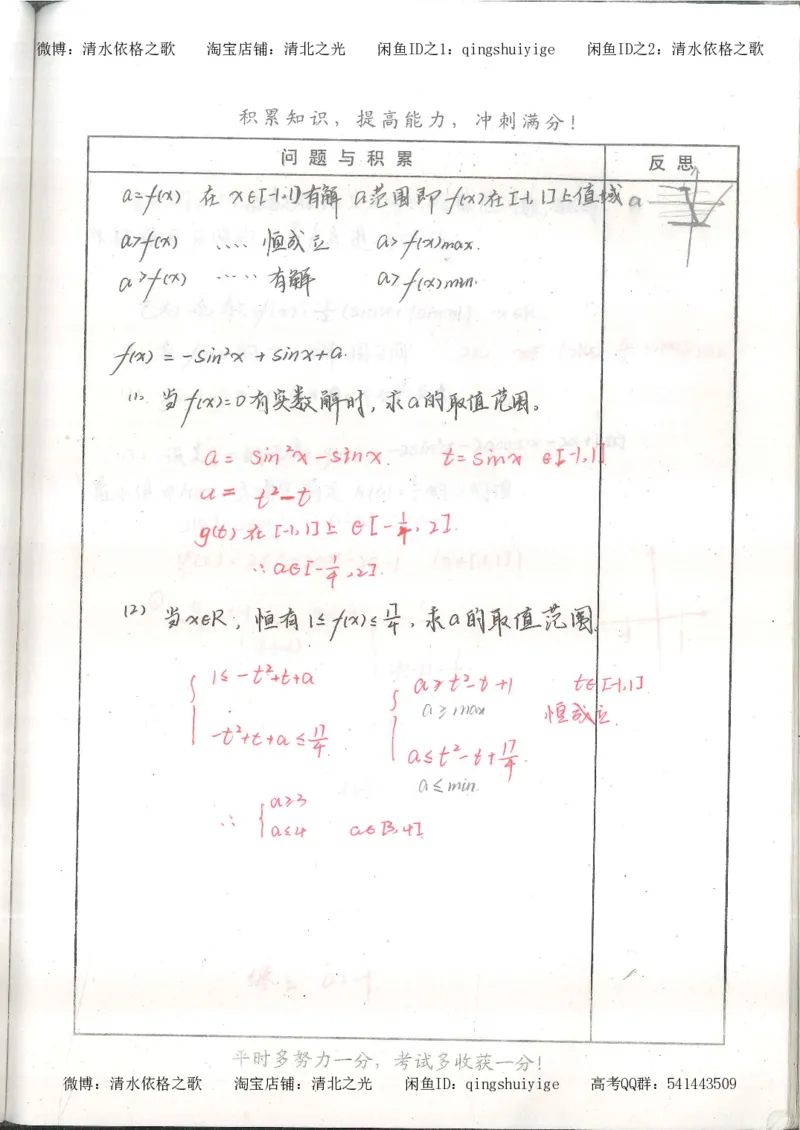 微博：清水依格之歌 淘宝店铺：清北之光 闲鱼ID之1：qingshuiyige 闲鱼ID之2：清水依格之歌
积累知识，提高能力，冲刺满分！
问题与积累 反思
a=f(x) 在 x∈[-1,1]有解 a范围即f(x)在[-1,1]上值域 a
a>f(x) ····· 恒成立 a>f(x)max.
a>f(x) ····· 有解 a>f(x)min.
f(x)=-sin²x+sinx+a.
(1). 当f(x)=0有实数解时，求a的取值范围。
a=sin²x-sinx. t=sinx ∈[-1,1]
a=t²-t
g(t)在[-1,1]上 ∈[-1/4, 2].
∴a∈[-1/4, 2].
(2) 当x∈R，恒有1≤f(x)≤17/4，求a的取值范围.
{ 1≤-t²+t+a { a≥t²-t+1 t∈[-1,1]
a≥max 恒成立.
-t²+t+a≤17/4. a≤t²-t+17/4.
a≤min.
∴ { a≥3
a≤4 a∈[3,4].
平时多努力一分，考试多收获一分！
微博：清水依格之歌 淘宝店铺：清北之光 闲鱼ID：qingshuiyige 高考QQ群：541443509